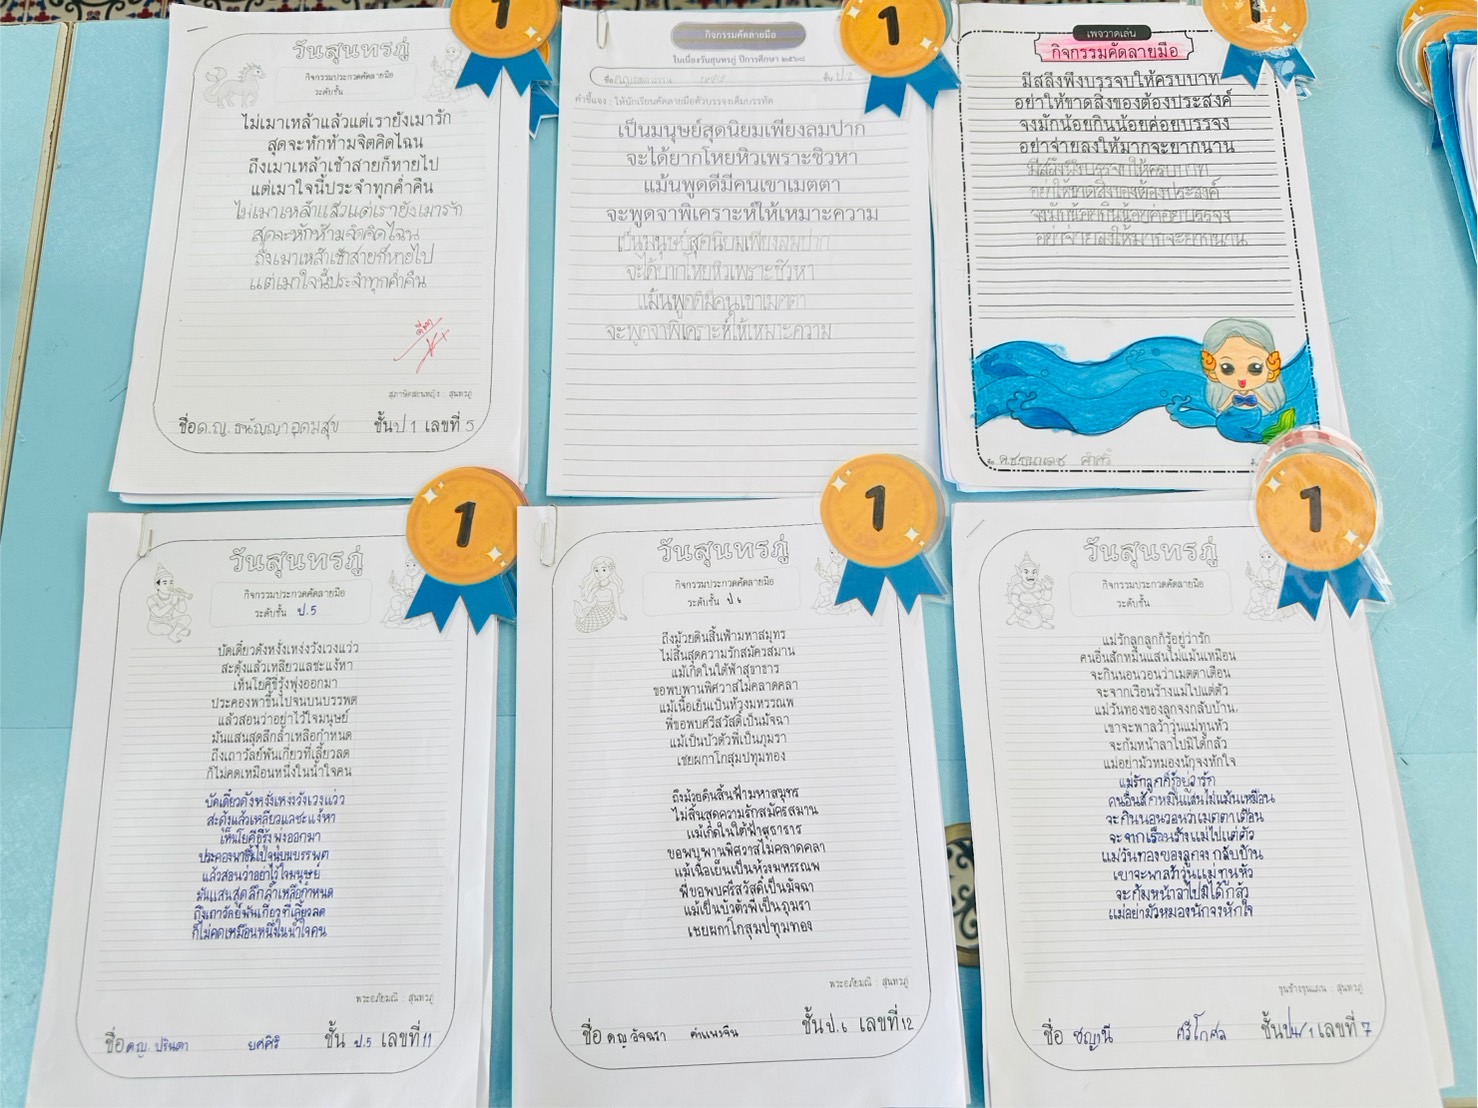 1
วันสุนทรภู่
กิจกรรมประกวดคัดลายมือ
ระดับชั้น
ไม่เมาเหล้าแล้วแต่เรายังเมารัก
สุดจะหักห้ามจิตคิดไฉน
ถึงเมาเหล้าเช้าสายก็หายไป
แต่เมาใจนี้ประจำทุกค่ำคืน
ไม่เมาเหล้าแล้วแต่เรายังเมารัก
สุดจะหักห้ามจิตคิดไฉน
ถึงเมาเหล้าเช้าสายก็หายไป
แต่เมาใจนี้ประจำทุกค่ำคืน
สุภาษิตสอนหญิง : สุนทรภู่
ชื่อ ด.ญ. ธนัญญา อุดมสุข ชั้น ป 1 เลขที่ 5
1
กิจกรรมคัดลายมือ
ในเนื่องวันสุนทรภู่ ปีการศึกษา ๒๕๖๘
ชื่อ ชั้น ป.2
คำชี้แจง : ให้นักเรียนคัดลายมือตัวบรรจงเต็มบรรทัด
เป็นมนุษย์สุดนิยมเพียงลมปาก
จะได้ยากโหยหิวเพราะชิวหา
แม้นพูดดีมีคนเขาเมตตา
จะพูดจาพิเคราะห์ให้เหมาะความ
เป็นมนุษย์สุดนิยมเพียงลมปาก
จะได้ยากโหยหิวเพราะชิวหา
แม้นพูดดีมีคนเขาเมตตา
จะพูดจาพิเคราะห์ให้เหมาะความ
1
เพจวาดเล่น
กิจกรรมคัดลายมือ
มีสลึงพึงบรรจบให้ครบบาท
อย่าให้ขาดสิ่งของต้องประสงค์
จงมักน้อยกินน้อยค่อยบรรจง
อย่าจ่ายลงให้มากจะยากนาน
มีสลึงพึงบรรจบให้ครบบาท
อย่าให้ขาดสิ่งของต้องประสงค์
จงมักน้อยกินน้อยค่อยบรรจง
อย่าจ่ายลงให้มากจะยากนาน
ชื่อ ด.ช.ชนนเดช คำศรี
1
วันสุนทรภู่
กิจกรรมประกวดคัดลายมือ
ระดับชั้น ป.5
บัดเดี๋ยวดังหงั่งเหง่งวังเวงแว่ว
สะดุ้งแล้วเหลียวแลชะแง้หา
เห็นโยคีขี่รุ้งพุ่งออกมา
ประคองพาขึ้นไปจนบนบรรพต
แล้วสอนว่าอย่าไว้ใจมนุษย์
มันแสนสุดลึกล้ำเหลือกำหนด
ถึงเถาวัลย์พันเกี่ยวที่เลี้ยวลด
ก็ไม่คดเหมือนหนึ่งในน้ำใจคน
บัดเดี๋ยวดังหงั่งเหง่งวังเวงแว่ว
สะดุ้งแล้วเหลียวแลชะแง้หา
เห็นโยคีขี่รุ้งพุ่งออกมา
ประคองพาขึ้นไปจนบนบรรพต
แล้วสอนว่าอย่าไว้ใจมนุษย์
มันแสนสุดลึกล้ำเหลือกำหนด
ถึงเถาวัลย์พันเกี่ยวที่เลี้ยวลด
ก็ไม่คดเหมือนหนึ่งในน้ำใจคน
พระอภัยมณี : สุนทรภู่
ชื่อ ด.ญ. ปรินดา ยศศิริ ชั้น ป.5 เลขที่ 11
1
วันสุนทรภู่
กิจกรรมประกวดคัดลายมือ
ระดับชั้น ป 6
ถึงม้วยดินสิ้นฟ้ามหาสมุทร
ไม่สิ้นสุดความรักสมัครสมาน
แม้เกิดในใต้ฟ้าสุธาธาร
ขอพบพานพิศวาสไม่คลาดคลา
แม้เนื้อเย็นเป็นห้วงมหรรณพ
พี่ขอพบศรีสวัสดิ์เป็นมัจฉา
แม้เป็นบัวตัวพี่เป็นภุมรา
เชยผกาโกสุมปทุมทอง
ถึงม้วยดินสิ้นฟ้ามหาสมุทร
ไม่สิ้นสุดความรักสมัครสมาน
แม้เกิดในใต้ฟ้าสุธาธาร
ขอพบพานพิศวาสไม่คลาดคลา
แม้เนื้อเย็นเป็นห้วงมหรรณพ
พี่ขอพบศรีสวัสดิ์เป็นมัจฉา
แม้เป็นบัวตัวพี่เป็นภุมรา
เชยผกาโกสุมปทุมทอง
พระอภัยมณี : สุนทรภู่
ชื่อ ด ญ วัจฉรา คำแพงจีน ชั้น ป. 6 เลขที่ 12
1
วันสุนทรภู่
กิจกรรมประกวดคัดลายมือ
ระดับชั้น
แม่รักลูกลูกก็รู้อยู่ว่ารัก
คนอื่นสักหมื่นแสนไม่แม้นเหมือน
จะกินนอนวอนว่าเมตตาเตือน
จะจากเรือนร้างแม่ไปแต่ตัว
แม่วันทองของลูกจงกลับบ้าน
เขาจะพาลว้าวุ่นแม่ทูนหัว
จะก้มหน้าลาไปมิได้กลัว
แม่อย่ามัวหมองนักจงหักใจ
แม่รักลูกก็รู้อยู่ว่ารัก
คนอื่นสักหมื่นแสนไม่แม้นเหมือน
จะกินนอนวอนว่าเมตตาเตือน
จะจากเรือนร้างแม่ไปแต่ตัว
แม่วันทองของลูกจงกลับบ้าน
เขาจะพาลว้าวุ่นแม่ทูนหัว
จะก้มหน้าลาไปมิได้กลัว
แม่อย่ามัวหมองนักจงหักใจ
ขุนช้างขุนแผน : สุนทรภู่
ชื่อ ชญานี ศรีโกศล ชั้น ป4/1 เลขที่ 7